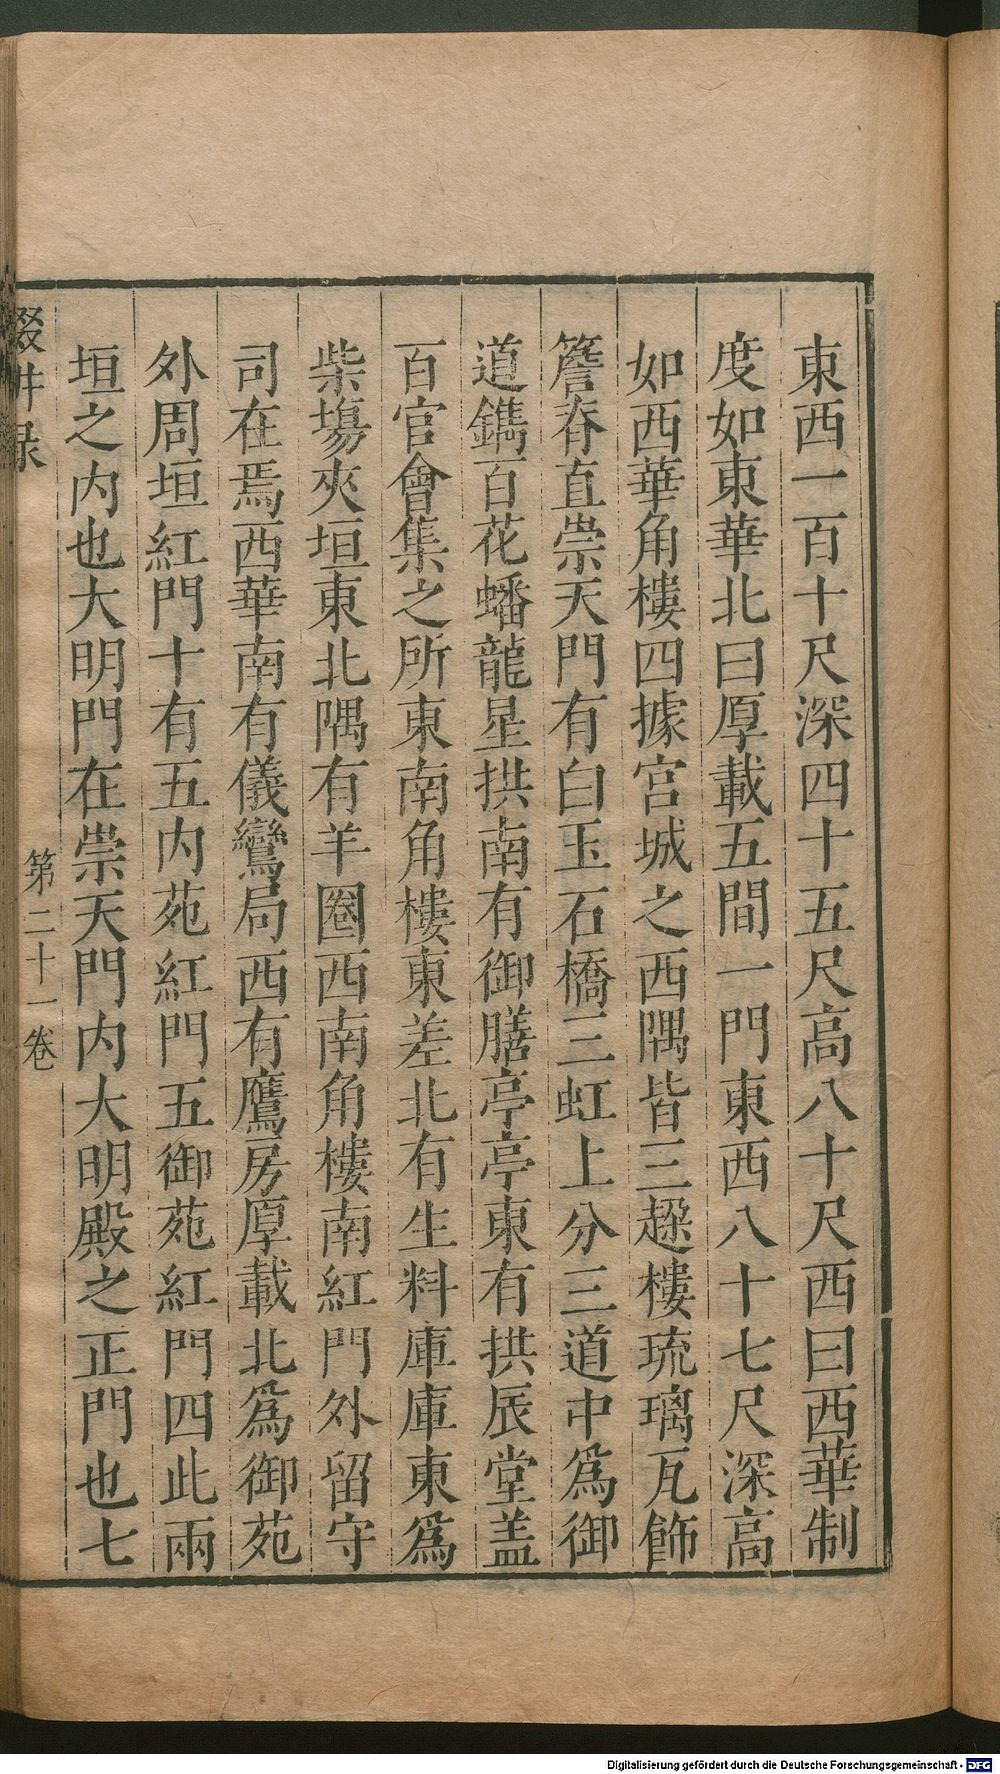 東西一百十尺深四十五尺高八十尺西曰西華制
度如東華北曰厚載五間一門東西八十七尺深高
如西華角樓四據宮城之西隅皆三趓樓琉璃瓦飾
簷脊直崇天門有白玉石橋三虹上分三道中爲御
道鐫百花蟠龍星拱南有御膳亭亭東有拱辰堂盖
百官會集之所東南角樓東差北有生料庫庫東爲
柴塲夾垣東北隅有羊圈西南角樓南紅門外留守
司在焉西華南有儀鸞局西有鷹房厚載北爲御苑
外周垣紅門十有五内苑紅門五御苑紅門四此兩
垣之内也大明門在崇天門内大明殿之正門也七
輟畊录
第二十一卷
Digitalisierung gefördert durch die Deutsche Forschungsgemeinschaft - DFG